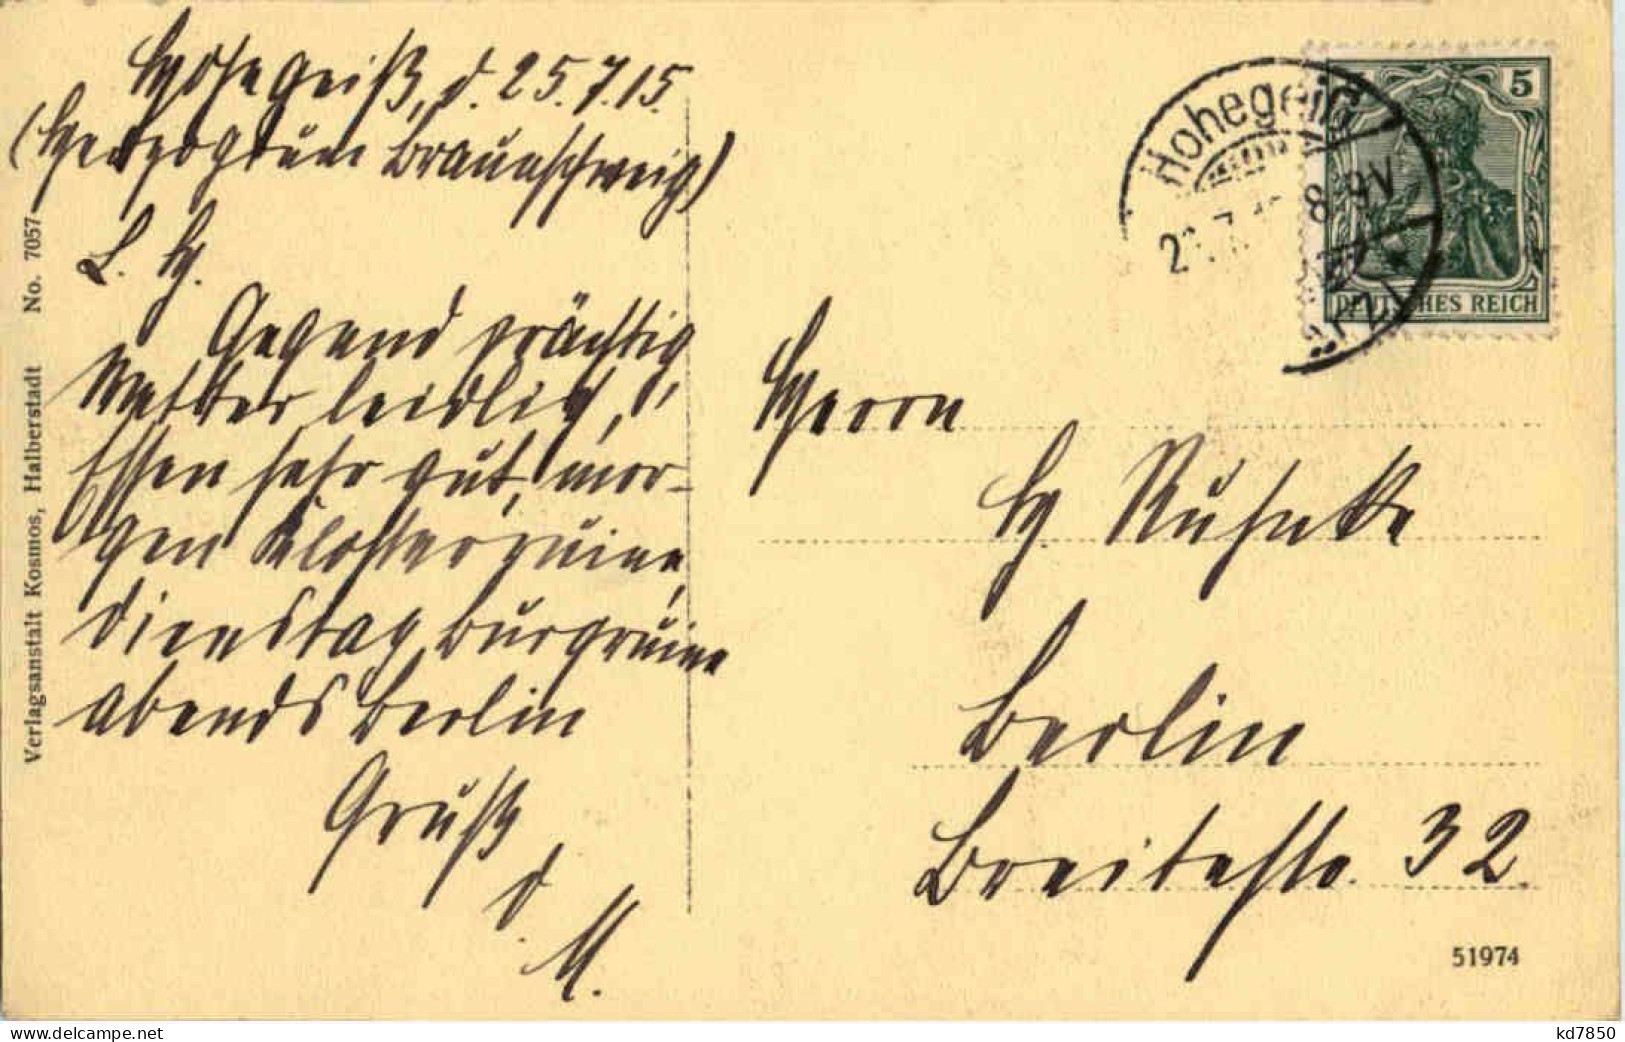 Hohegeiß, d. 25.7.15.
(Herzogtum Braunschweig)
L. H.
Gegend prächtig,
Wetter leidlich,
Essen sehr gut, mor-
gen Klosterruine,
Dienstag Burgruine
abends Berlin
Gruß
d.
M.
Verlagsanstalt Kosmos, Halberstadt No. 7057
Hohegeiß
8-9V
5
DEUTSCHES REICH
Herrn
H. Ruhnke
Berlin
Breitestr. 32
51974
delcampe.net
kd7850